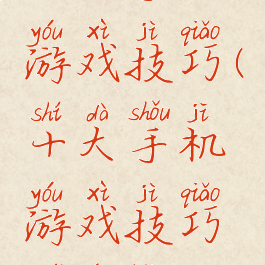 yóu xì jì qiǎo
游戏技巧(
shí dà shǒu jī
十大手机
yóu xì jì qiǎo
游戏技巧